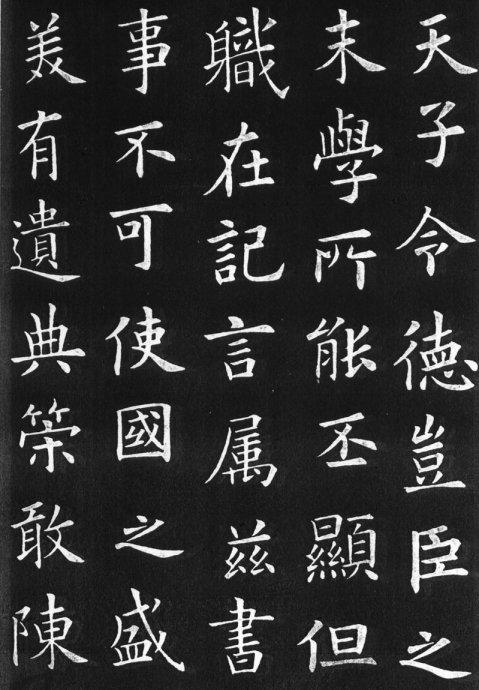 天子令德豈臣之
末學所能丕顯但
職在記言属兹書
事不可使國之盛
美有遺典策敢陳